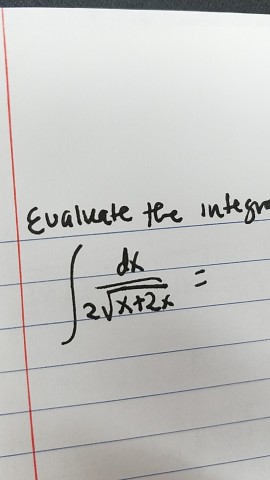 Evaluate the integra
∫ dx / 2√x+2x =